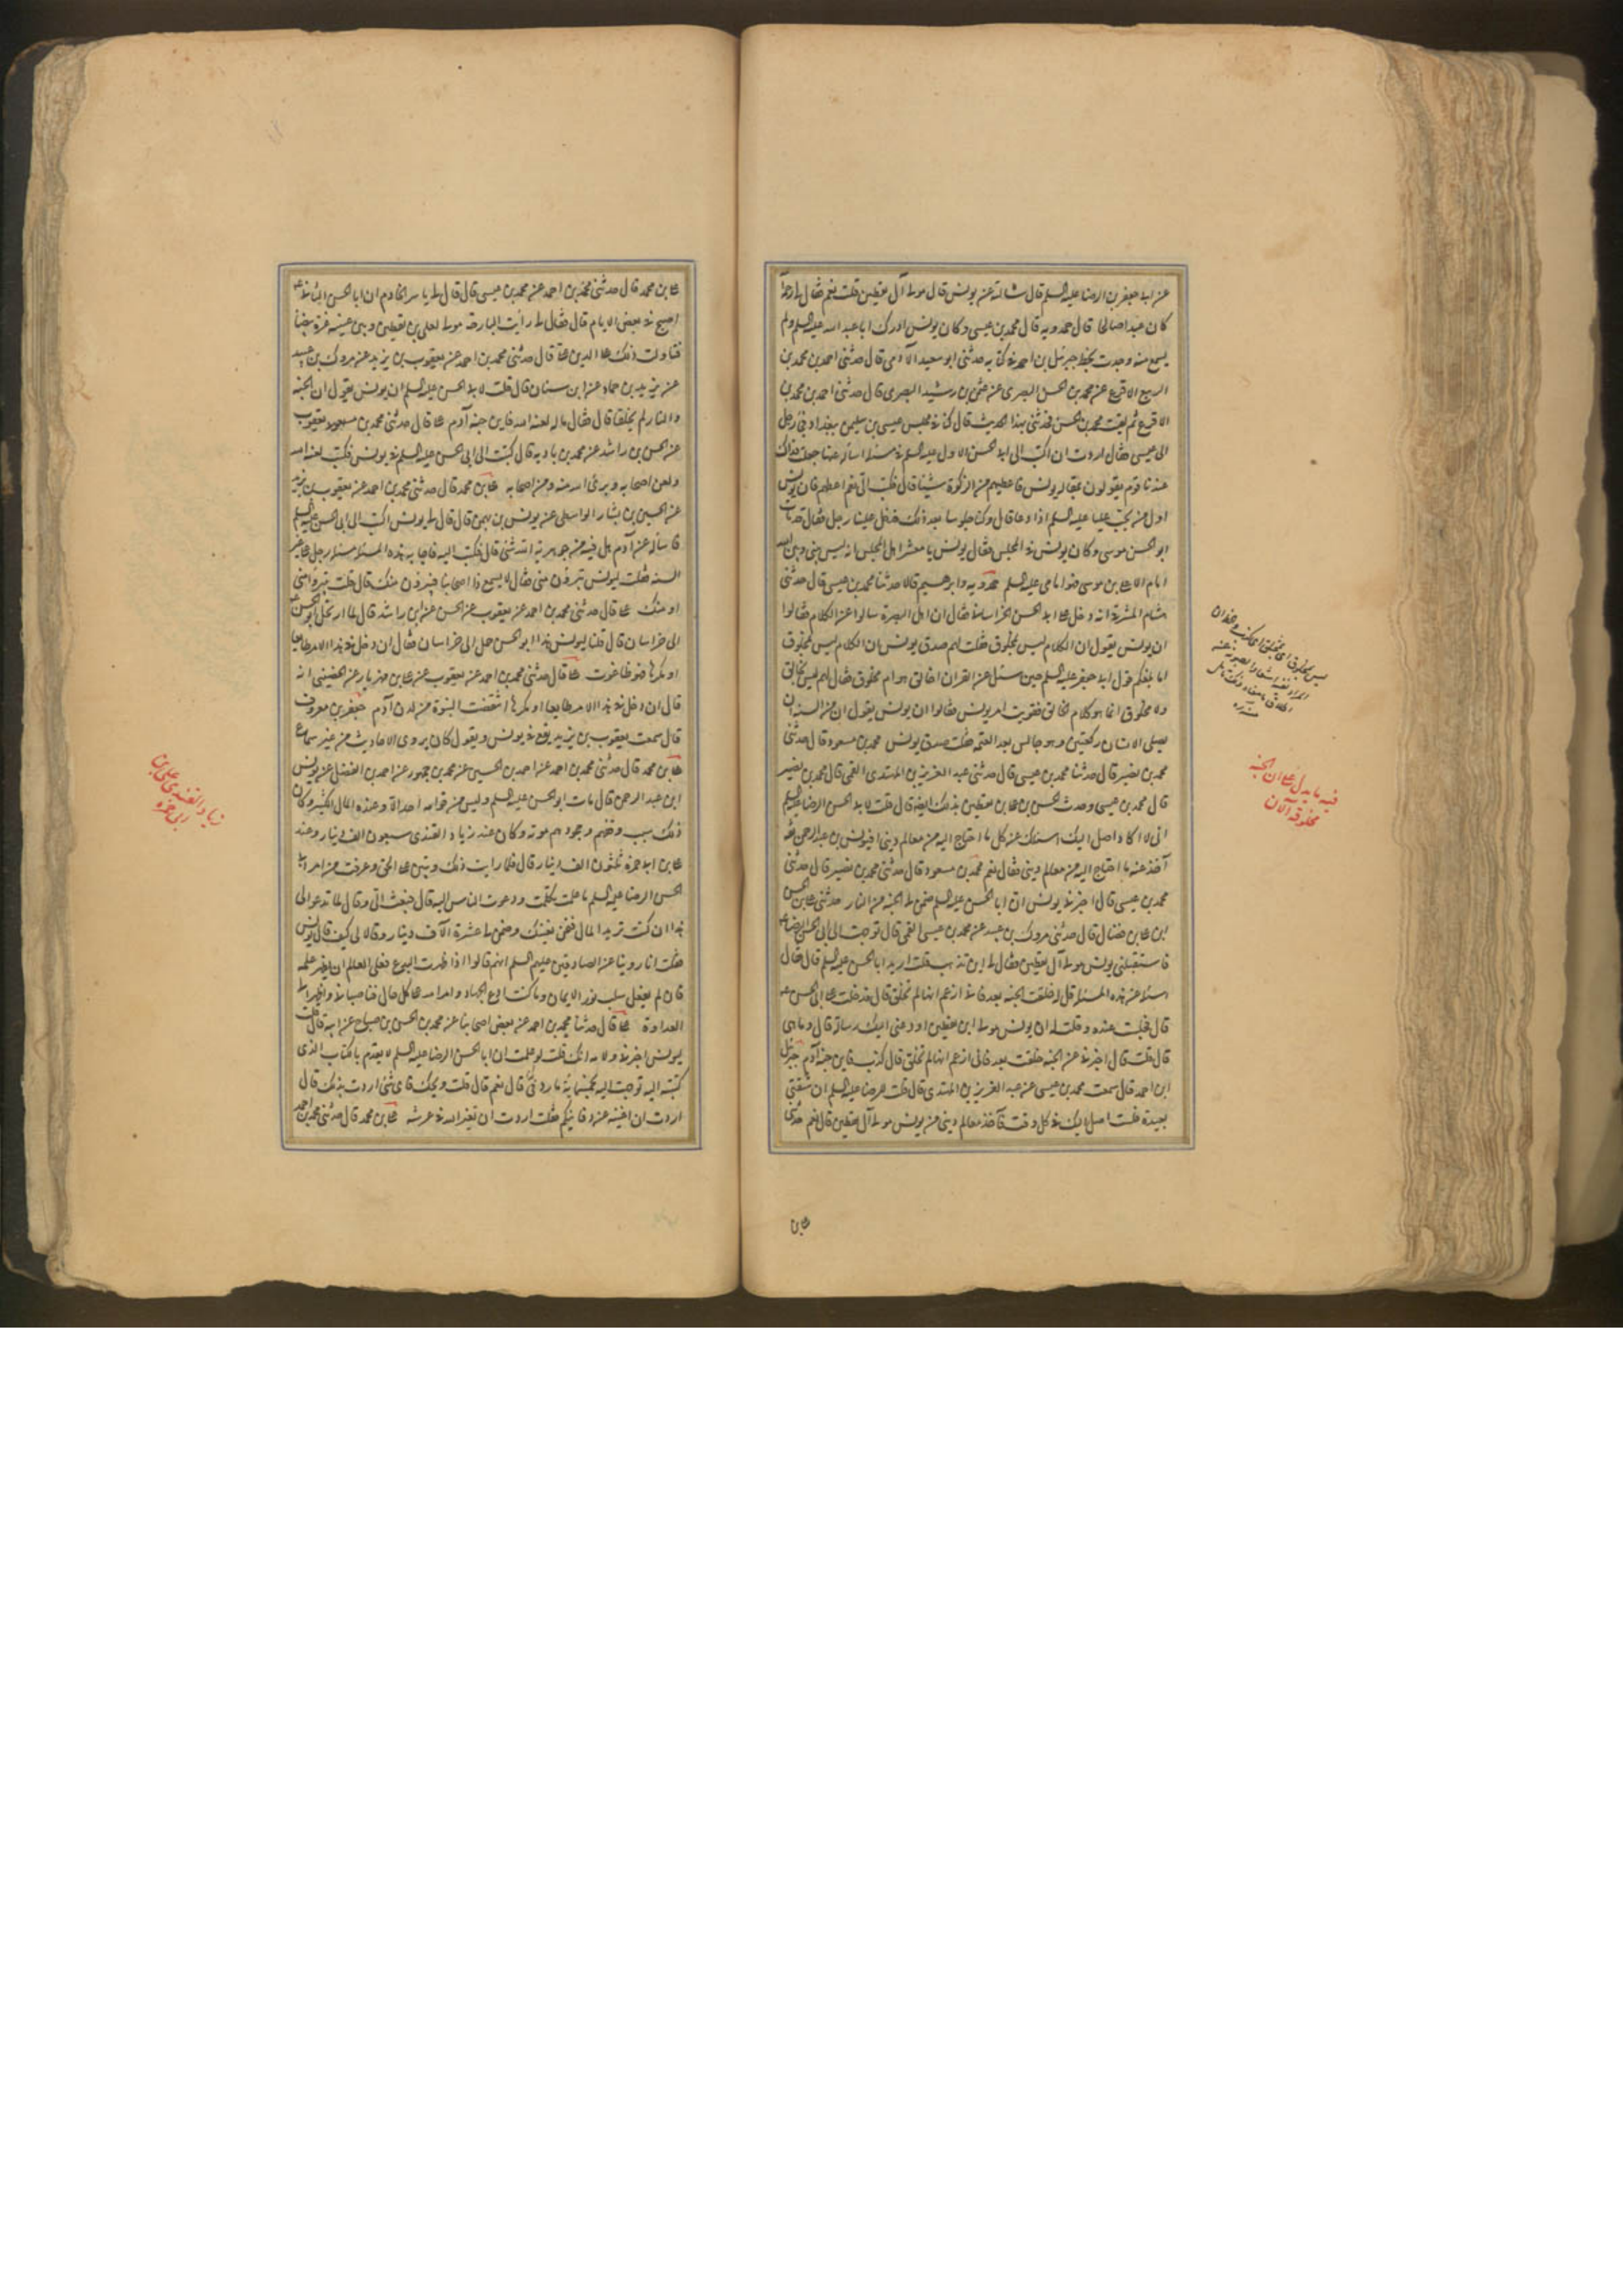 عن ابى جعفر بن الرضا عليه السلم قال سالته عن يونس قال مولى آل يقطين قلت نعم فقال لى رحمه
كان عبدا صالحا قال حمدويه قال محمد بن عيسى وكان يونس ادرك ابا عبد الله عليه السلم ولم
يسمع منه وجدت بخط جبرئيل بن احمد فى كتابه حدثنى ابو سعيد الآدمى قال حدثنى احمد بن محمد بن
الربيع الاقرع عن محمد بن الحسن البصرى عن عثمن بن رشيد البصرى قال حدثنى احمد بن محمد بن
الاقرع ثم لقيت محمد بن الحسن فحدثنى بهذا الحديث قال كنا فى مجلس عيسى بن سليمن ببغداد فجئ رجل
الى عيسى فقال اردت ان اكتب الى ابى الحسن الاول عليه السلم فى مسئلة اساله عنها جعلت فداك
عندنا قوم يقولون بمقالة يونس فاعطيهم من الزكوة شيئا قال فكتب الى نعم اعطهم فان يونس
اول من يجيب عليا عليه السلم اذا دعا قال وكنا جلوسا بعد ذلك فدخل علينا رجل فقال قد مات
ابو الحسن موسى وكان يونس فى المجلس فقال يونس يا معشر اهل المجلس انه ليس بينى وبين الله
امام الا على بن موسى فهو امامى عليه السلم حمدويه وابرهيم قالا حدثنا محمد بن عيسى قال حدثنى
هشام المشرقى انه دخل على ابى الحسن الخراسانى فقال ان اهل البصرة سالوا عن الكلام فقالوا
ان يونس يقول ان الكلام ليس بمخلوق فقلت لهم صدق يونس ان الكلام ليس بمخلوق
اما بلغكم قول ابى جعفر عليه السلم حين سئل عن القران اخالق هو ام مخلوق فقال لهم ليس بخالق
ولا مخلوق انما هو كلام الخالق فقويت امر يونس فقالوا ان يونس يقول ان من السنة ان
يصلى الانسان ركعتين وهو جالس بعد العتمة فقلت صدق يونس محمد بن مسعود قال حدثنى
محمد بن نصير قال حدثنا محمد بن عيسى قال حدثنى عبد العزيز بن المهتدى القمى قال محمد بن نصير
قال محمد بن عيسى وحدث الحسن بن على بن يقطين بذلك ايضا قال قلت لابى الحسن الرضا عليه السلم
انى لا اكاد اصل اليك اسئلك عن كل ما احتاج اليه من معالم دينى افيونس بن عبد الرحمن ثقة
آخذ عنه ما احتاج اليه من معالم دينى فقال نعم محمد بن مسعود قال حدثنى محمد بن نصير قال حدثنى
محمد بن عيسى قال اخبرنى يونس ان ابا الحسن عليه السلم ضمن لى الجنة من النار حدثنى على بن الحسن
ابن على بن فضال قال حدثنى مروك بن عبيد عن محمد بن عيسى القمى قال توجهت الى ابى الحسن الرضا ع
فاستقبلنى يونس مولى آل يقطين فقال لى اين تذهب فقلت اريد ابا الحسن عليه السلم قال فقال
اسئله عن هذه المسئلة قل له خلقت الجنة بعد فانى ازعم انها لم تخلق قال فدخلت على ابى الحسن ع
قال فجلست عنده وقلت له ان يونس مولى ابن يقطين اودعنى اليك رسالة قال وما هى
قال قلت قال اخبرنى عن الجنة خلقت بعد فانى ازعم انها لم تخلق قال كذب فاين جنة آدم جبرئيل
ابن احمد قال سمعت محمد بن عيسى عن عبد العزيز بن المهتدى قال قلت للرضا عليه السلم ان شقتى
بعيدة فلست اصل اليك فى كل وقت فآخذ معالم دينى من يونس مولى آل يقطين قال نعم حدثنى
على بن
فيه ما يدل على ان الجنة
مخلوقة الآن
على بن محمد قال حدثنى محمد بن احمد عن محمد بن عيسى قال قال لى ياسر الخادم ان ابا الحسن الثانى ع
اصبح فى بعض الايام قال فقال لى رايت البارحة مولى لعلى بن يقطين وبين عينيه غرة بيضاء
فتاولت ذلك على الدين على قال حدثنى محمد بن احمد عن يعقوب بن يزيد عن مروك بن عبيد
عن يزيد بن حماد عن ابن سنان قال قلت لابى الحسن عليه السلم ان يونس يقول ان الجنة
والنار لم يخلقا قال فقال ما له لعنه الله فاين جنة آدم على قال حدثنى محمد بن يعقوب
عن الحسن بن راشد عن محمد بن باديه قال كتبت الى ابى الحسن عليه السلم فى يونس فكتب لعنه الله
ولعن اصحابه وبرئ الله منه ومن اصحابه على بن محمد قال حدثنى محمد بن احمد عن يعقوب بن يزيد
عن الحسين بن بشار الواسطى عن يونس بن بهمن قال قال لى يونس اكتب الى ابى الحسن عليه السلم
فاساله عن آدم هل فيه من جوهرية الله شئ قال فكتبت اليه فاجابه هذه المسئلة مسئلة رجل على غير
السنة فقلت ليونس فقال لا يسمع ذا اصحابنا فيبرؤن منك قال قلت ليونس يتبرؤن منى
او منك على قال حدثنى محمد بن احمد عن يعقوب عن الحسن عن ابن راشد قال لما ارتحل ابو الحسن ع
الى خراسان قال قلنا ليونس هذا ابو الحسن حمل الى خراسان فقال ان دخل فى هذا الامر طايعا
او مكرها فهو طاغوت على قال حدثنى محمد بن احمد عن يعقوب عن على بن مهزيار عن الحضينى انه
قال ان دخل فى هذا الامر طايعا او مكرها انتقضت النبوة من لدن آدم جعفر بن معروف
قال سمعت يعقوب بن يزيد يقع فى يونس ويقول كان يروى الاحاديث من غير سماع
على بن محمد قال حدثنى محمد بن احمد عن احمد بن الحسين عن محمد بن جمهور عن احمد بن الفضل عن يونس
ابن عبد الرحمن قال مات ابو الحسن عليه السلم وليس من قوامه احد الا وعنده المال الكثير وكان
ذلك سبب وقفهم وجحودهم موته وكان عند زياد القندى سبعون الف دينار وعند
على بن ابى حمزة ثلثون الف دينار قال فلما رايت ذلك وتبين على الحق وعرفت من امر ابى
الحسن الرضا عليه السلم ما علمت تكلمت ودعوت الناس اليه قال فبعث الى وقال لا ما تدعوا الى
هذا ان كنت تريد المال فنحن نغنيك وضمن لى عشرة آلاف دينار وقالا لى كيف قال يونس
فقلت انا روينا عن الصادقين عليهم السلم انهم قالوا اذا ظهرت البدع فعلى العالم ان يظهر علمه
فان لم يفعل سلب نور الايمان وما كنت ادع الجهاد وامر الله على كل حال فناصبانى واظهرا لى
العداوة على قال حدثنا محمد بن احمد عن بعض اصحابنا عن محمد بن الحسن بن صباح عن ابيه قال قلت
ليونس اخبرنى دلامة انك قلت لو علمت ان ابا الحسن الرضا عليه السلم لا يقدم بالكتاب الذى
كتبته اليه توجهت اليه بخمسمائة مارونى قال نعم قال قلت ويحك فاى شئ اردت بذلك قال
اردت ان اغنيه عن دفائنكم فقلت اردت ان تغير الله فى عرشه على بن محمد قال حدثنى محمد بن احمد
زياد القندى على بن
ابى حمزه